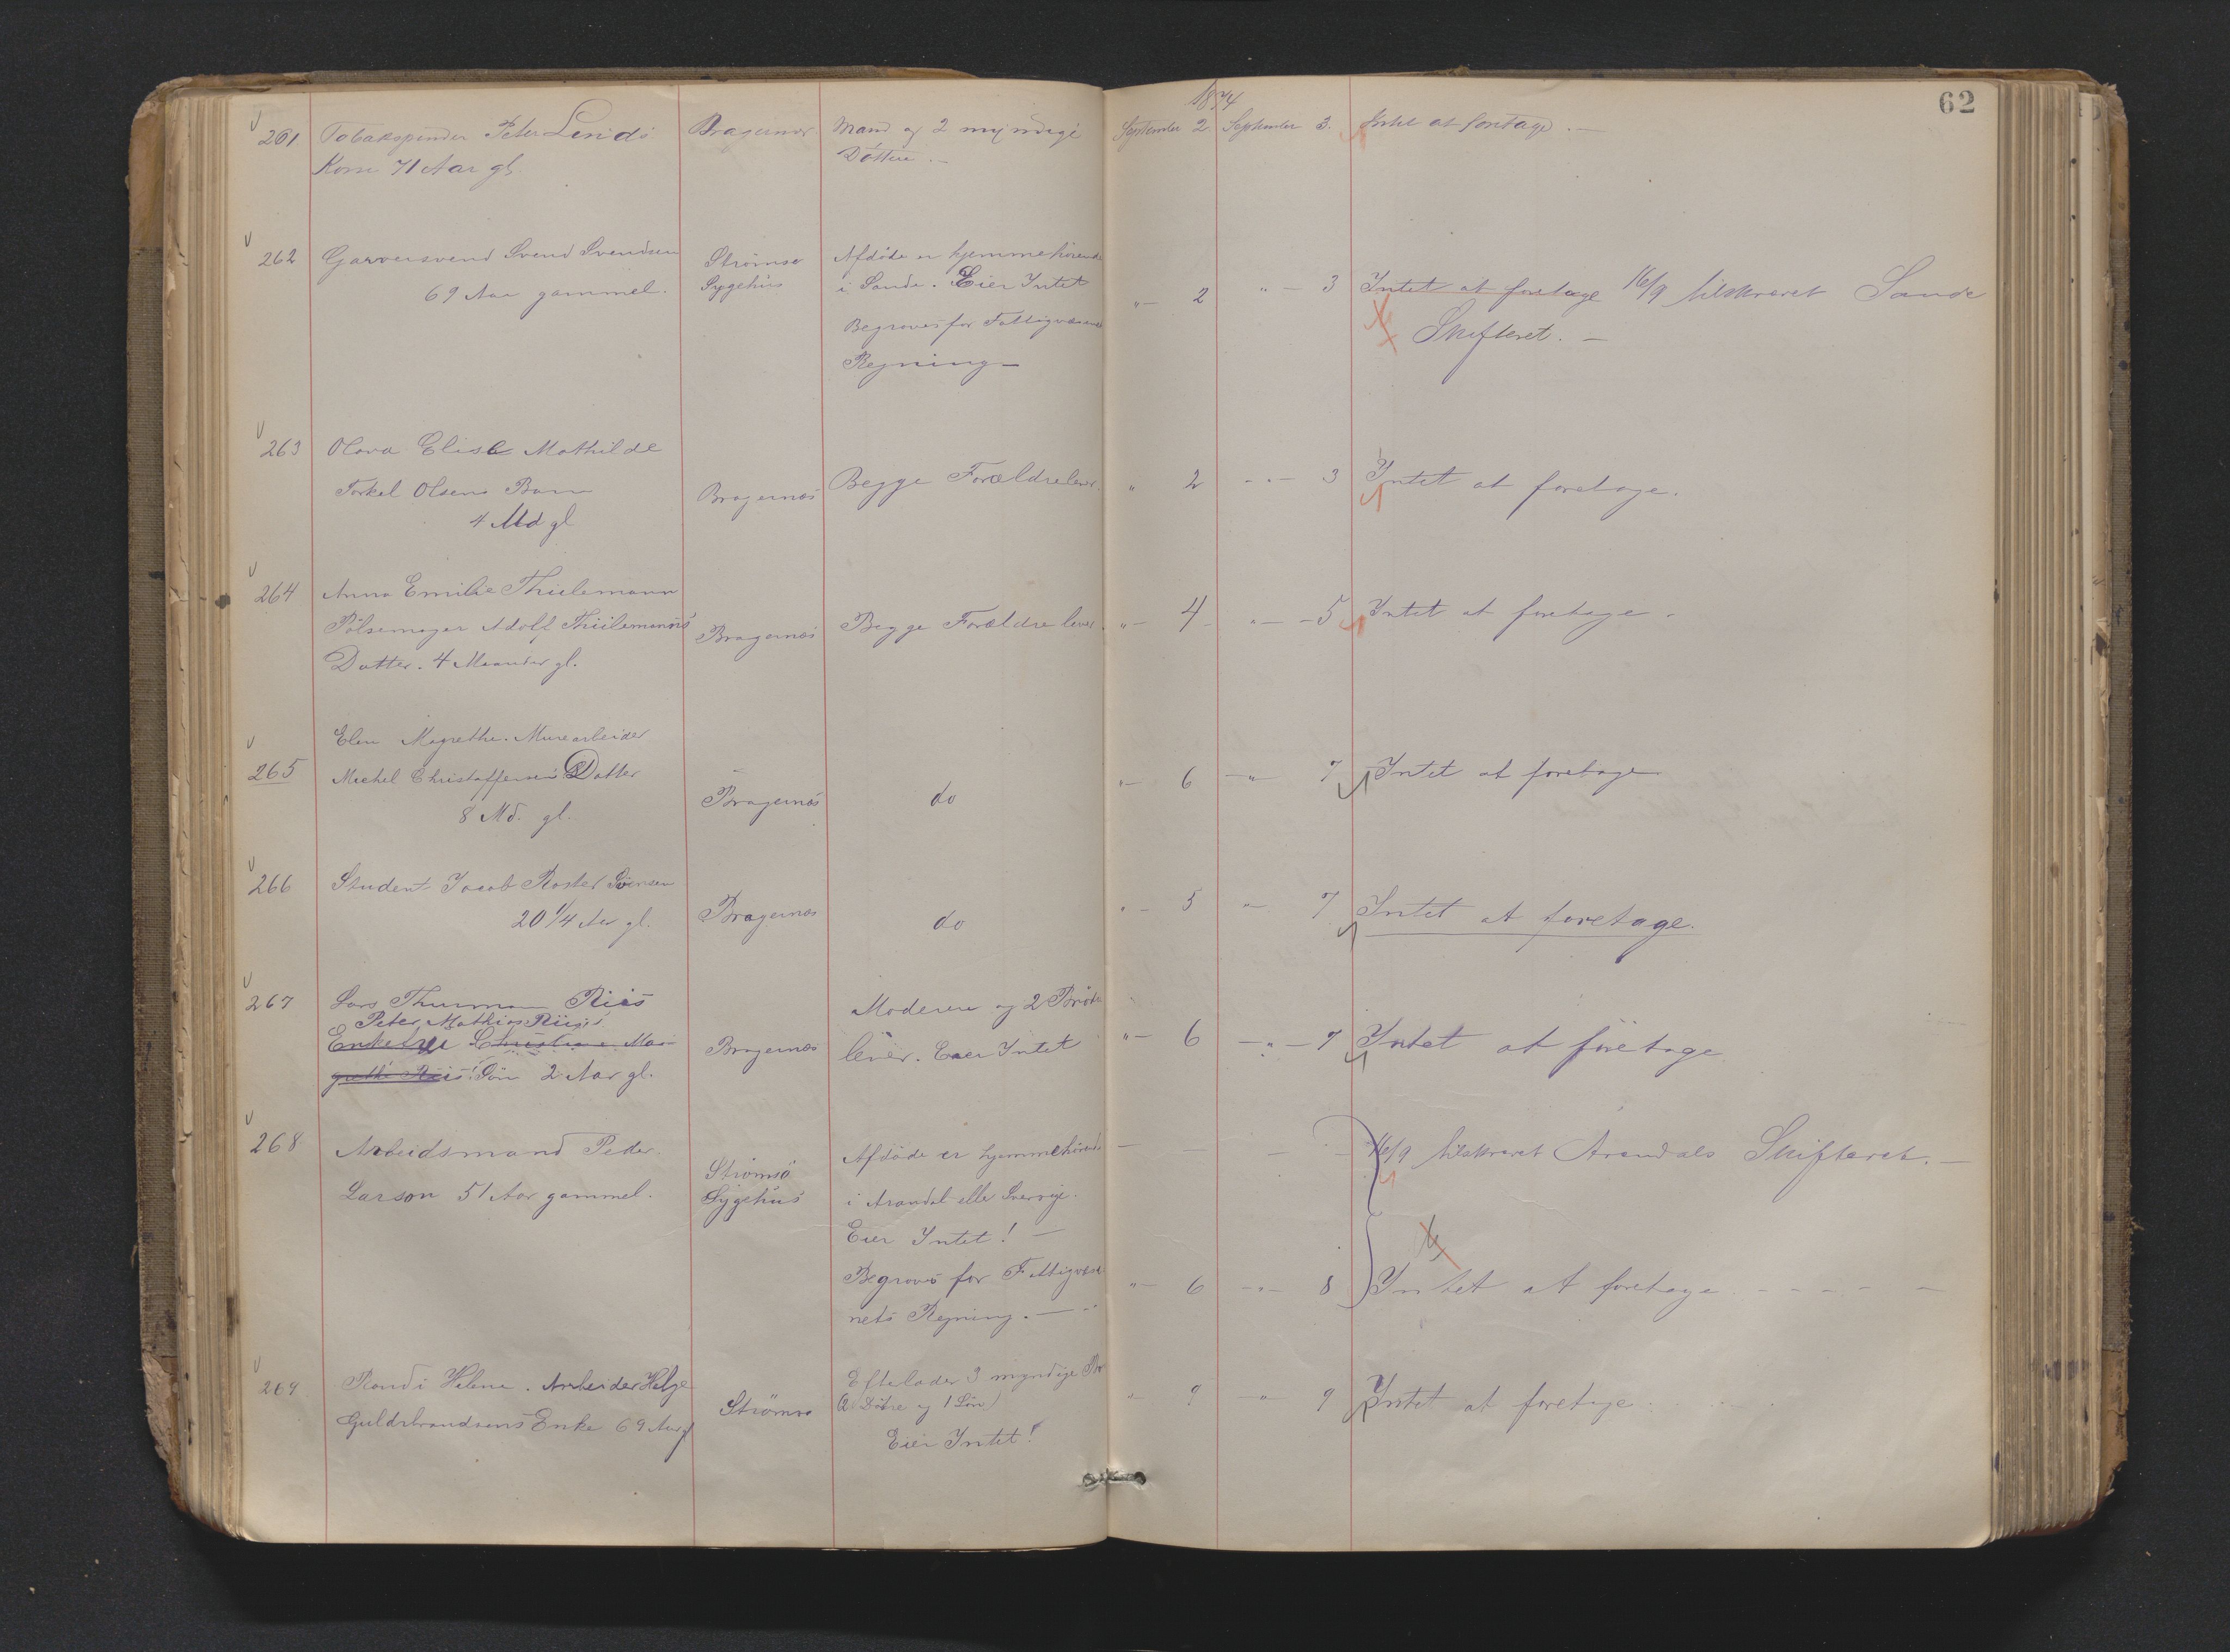 1874
62
261 Tobakspinder Peter Linds Bragernes Mand og 2 myndige September 2. September 3. Intet at foretage. —
Kone 71 Aar gl. Döttre. —
262 Garversvend Svend Svendsen Strömsö Afdöde er hjemmehörende
69 Aar gammel. Sygehus i Sande. Eier Intet "— 2 "— 3 Intet at foretage 16/9 tilskrevet Sande
Begraves for Fattigvæsenets Skifteret. —
Regning —
263 Olava Elise Mathilde
Torkel Olsens Barn Bragernæs Begge Forældre lever. " 2 —"— 3 Intet at foretage.
4 Md gl
264 Anna Emilie Thielemann
Pölsemager Adolf Thielemanns Bragernæs Begge Forældre lever. "— 4 — "— 5 Intet at foretage —
Datter. 4 Maaneder gl.
Elen Magrethe. Murarbeider
265 Michel Christoffersens Datter Bragernæs do "— 6 —"— 7 Intet at foretage
8 Md. gl.
266 Student Jacob Sörensen
20 1/4 Aar gl. Bragernæs do "— 5 "— 7 Intet at foretage.
267 Lars Thurman Riis Moderen og 2 Brödre
Peter Mathias Riis's
Enkefru Christiane Mar- Bragernæs lever. Eier Intet "— 6 —"— 7 Intet at foretage
grethe Riis' Sön 2 Aar gl.
268 Arbeidsmand Peder Strömsö Afdöde er hjemmehörende — — — — 16/9 tilskrevet Arendals Skifteret. —
Larson 51 Aar gammel. Sygehus i Arendal eller Sverrige.
Eier Intet! —
Begraves for Fattigvæse- "— 6 —"— 8 Intet at foretage — — — — —
nets Regning. —
269 Randi Helene. Arbeider Helge Efterlader 3 myndige
Guldbrandsens Enke 69 Aar gl Strömsö (2 Döttre og 1 Sön) "— —"— 9 Intet at foretage.
Eier Intet!